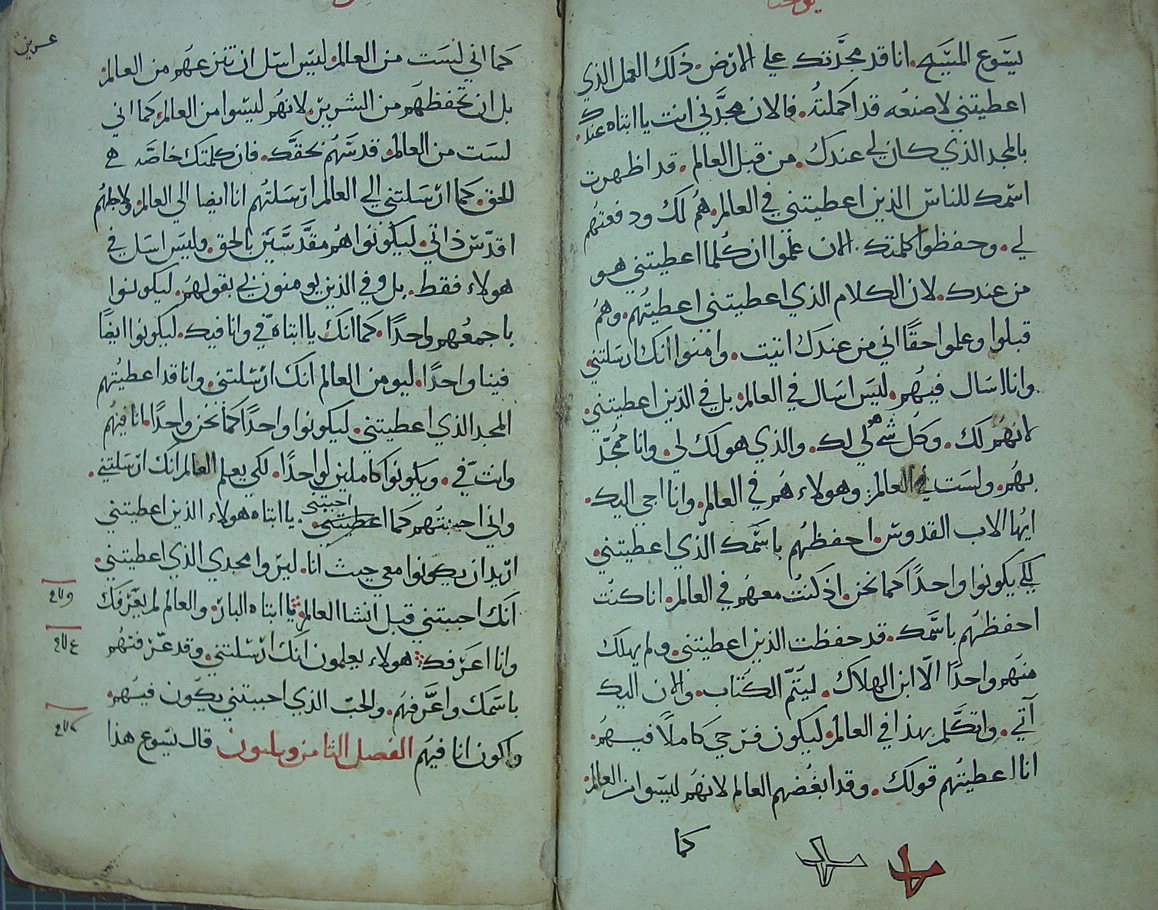 يوحنا
يسوع المسيح. انا قد مجّدتك على الارض. ذلك العمل الذي
اعطيتني لاصنعه قد اكملتُه. فالان مجّدني انت يا ابتاه عندك.
بالمجد الذي كان لي عندك. من قبل العالم. قد اظهرت
اسمك للناس الذين اعطيتني في العالم. هُم لك ودفعتهُم
لي. وحفظوا كلمتك. الان علموا ان كُلما اعطيتني هو
من عندك. لان الكلام الذي اعطيتني اعطيتهُم. وهُم
قبلوا وعلموا حقًا اني من عندك اتيت. وامنوا انك ارسلتني
وانا اسال فيهُم. ليس اسال في العالم. بل في الذين اعطيتني.
لانهُم لك. وكل شي هو لي لك. والذي هو لك لي. وانا ممجّد
بهُم. ولست في العالم. وهولاء هُم في العالم. وانا اجي اليك.
ايُها الاب القدوس. احفظهُم باسمك الذي اعطيتني.
لكي يكونوا واحدًا كما نحن. اذ كنتُ معهُم في العالم. انا كنتُ
احفظهُم باسمك. قد حفظت الذين اعطيتني. ولم يهلك
منهُم واحدًا الّا ابن الهلاك. ليتمّ الكتاب. والان اليك
آتي. واتكلّم بهذا في العالم. ليكون فرحي كاملًا فيهُم.
انا اعطيتهُم قولك. وقد ابغضهم العالم لانهُم ليسوا من العالم.
كما
كما اني لست من العالم. ليس اسل ان تنزعهُم من العالم.
بل ان تحفظهُم من الشرير. لانهُم ليسوا من العالم. كما اني
لست من العالم. قدسهُم بحقك. فان كلمتك خاصّه هي
للحق. كما ارسلتني الي العالم ارسلتهُم انا ايضا الي العالم. ولاجلهُم
اقدّس ذاتي. ليكونوا هُم مقدّسَين بالحق. وليس اسل في
هولاء فقط. بل وفي الذين يومنون بي بقولهُم. ليكونوا
باجمعهُم واحدًا. كما انك يا ابتاه فيّ وانا فيك. ليكونوا ايضًا
فينا واحدًا. ليومن العالم انك ارسلتني. وانا قد اعطيتهُم
المجد الذي اعطيتني. ليكونوا واحدًا كما نحن واحدًا. انا فيهُم
وانت فيّ. ويكونوا كاملين لواحدًا. لكي يعلم العالم انك ارسلتني.
واني احببتهُم كما اعطيتني احببتني. يا ابتاه هولاء الذين اعطيتني
اريد ان يكونوا معي حيث انا. ليروا مجدي الذي اعطيتني.
انك احببتني قبل انشا العالم. يا ابتاه البار. والعالم لم يعرفك
وانا اعرفك. هولاء يعلمون انك ارسلتني. وقد عرّفتهُم
باسمك واعرّفهُم. والحُب الذي احببتني يكون فيهُم.
واكون انا فيهُم الفصل الثامن وثلثون قال يسوع هذا